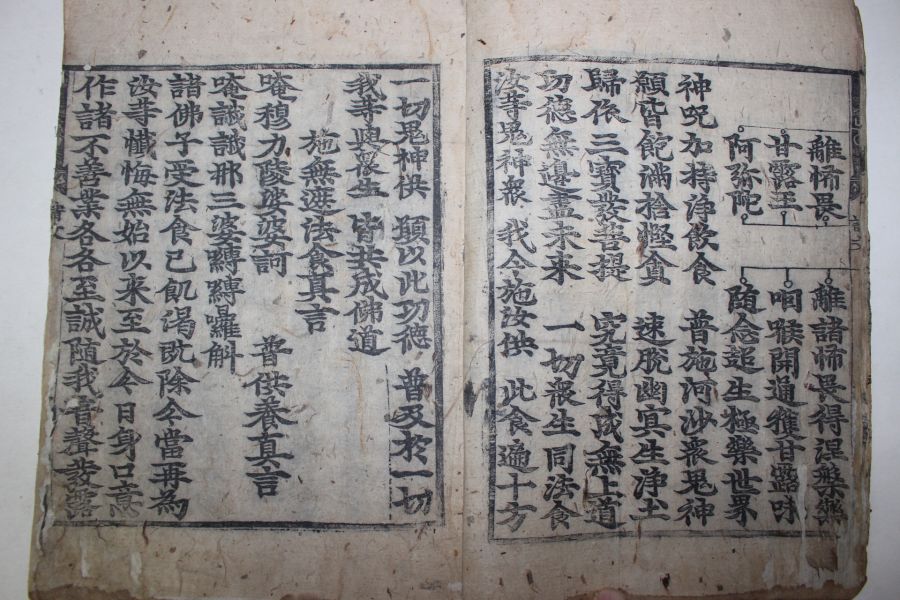 離怖畏 離諸怖畏得涅槃樂
甘露王 咽喉開通獲甘露味
阿弥陀 随念超生極樂世界
神咒加持淨飮食 普施河沙衆鬼神
願皆飽滿捨慳貪 速脫幽冥生淨土
歸依三寶發菩提 究竟得成無上道
功德無邊盡未来 一切衆生同法食
汝等鬼神衆 我今施汝供 此食遍十方
一切鬼神供 願以此功德 普及扵一切
我等與衆生 皆共成佛道
施無遮法食真言
唵穆力陵娑婆訶 普供養真言
唵誐誐那三婆縛縛囉斛
諸佛子受法食已飢渴旣除今當再為
汝等懺悔無始以来至於今日身口意
作諸不善業各各至誠随我音聲發露